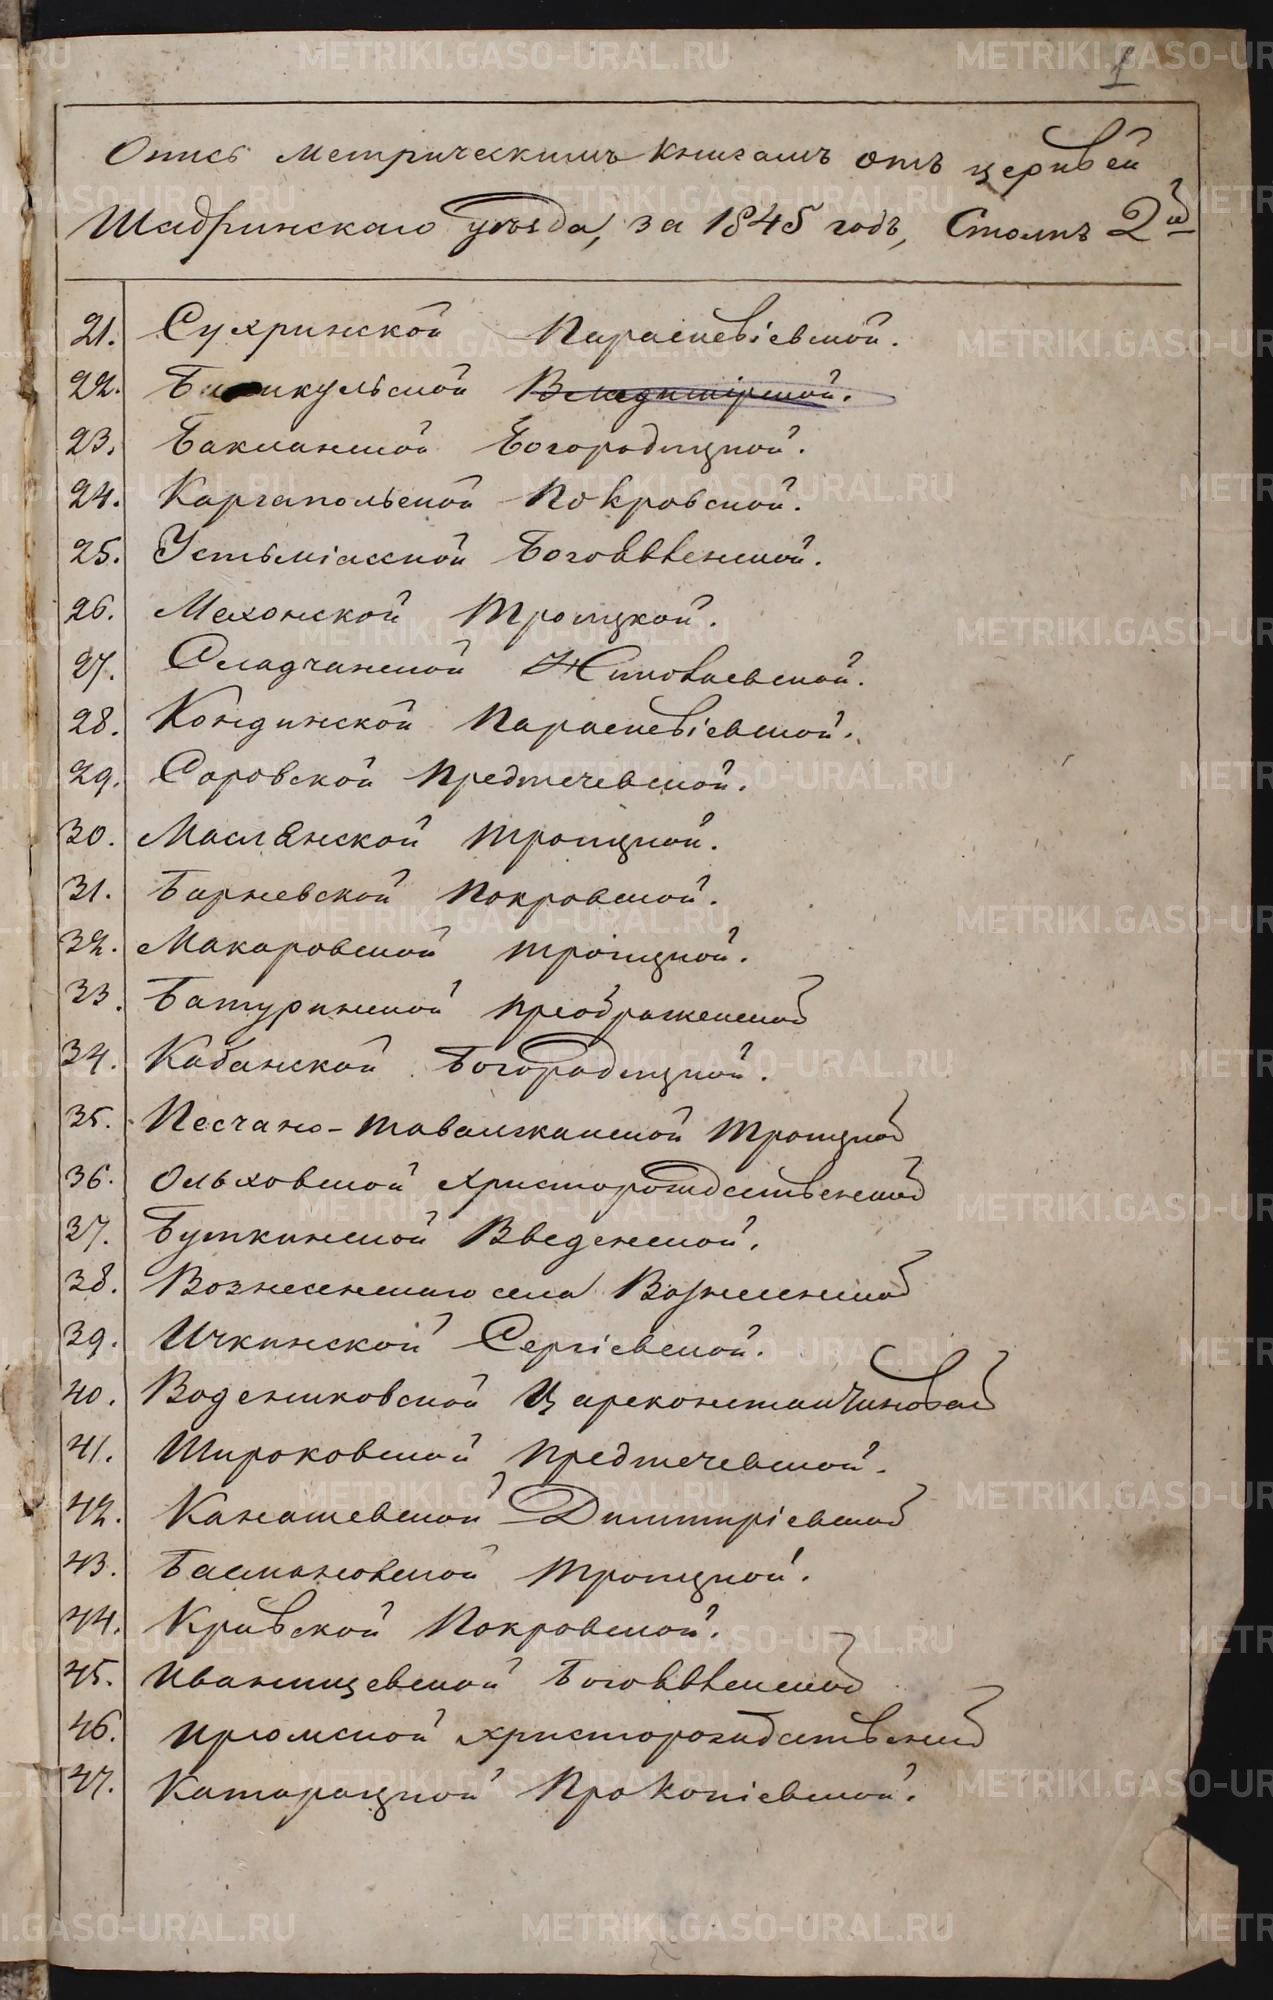 1
Опись метрическимъ книгамъ отъ церквей
Шадринскаго уѣзда, за 1845 годъ, Столпъ 2й
21. Сухринской Параскевіевской.
22. Владимірской.
23. Бакланской Богородицкой.
24. Каргапольской Покровской.
25. Устьміасской Богоявленской.
26. Мехонской Троицкой.
27. Сладчанской Николаевской.
28. Кондинской Параскевіевской.
29. Соровской Предтечевской.
30. Маслянской Троицкой.
31. Барневской Покровской.
32. Макаровской Троицкой.
33. Батуринской Преображенской
34. Кабанской Богородицкой.
35. Песчано-Таволжанской Троицкой
36. Ольховской Христорождественской
37. Буткинской Введенской.
38. Вознесенскаго села Вознесенской
39. Ичкинской Сергіевской.
40. Водениковской Цареконстантиновской
41. Широковской Предтечевской.
42. Канашевской Димитріевской
43. Басмановской Троицкой.
44. Кривской Покровской.
45. Иванищевской Богоявленской
46. Ирюмской Христорождественской
47. Катарацкой Прокопіевской.
METRIKI.GASO-URAL.RU